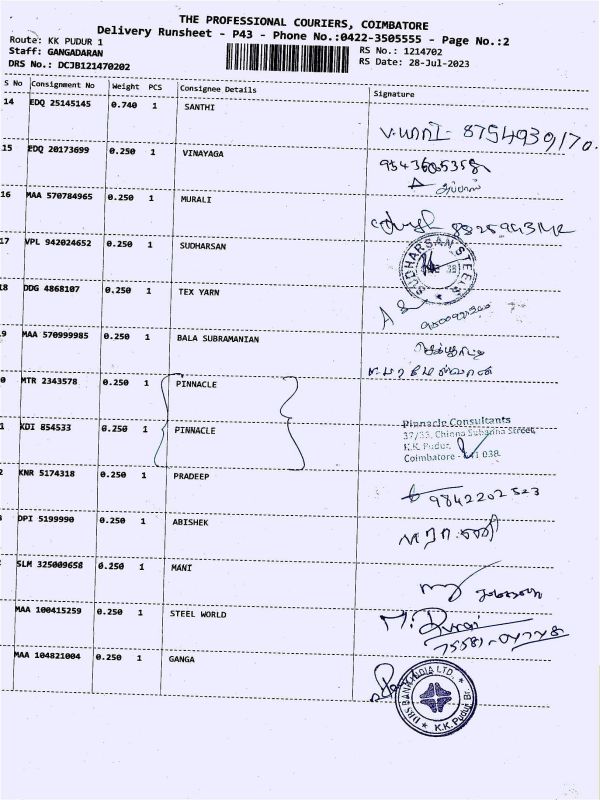 THE PROFESSIONAL COURIERS, COIMBATORE
Delivery Runsheet - P43 - Phone No.:0422-3505555 - Page No.:2
Route: KK PUDUR 1
RS No.: 1214702
Staff: GANGADARAN
RS Date: 28-Jul-2023
DRS No.: DCJB121470202
S No Consignment No Weight PCS Consignee Details Signature
14 EDQ 25145145 0.740 1 SANTHI
15 EDQ 20173699 0.250 1 VINAYAGA
16 MAA 570784965 0.250 1 MURALI
17 VPL 942024652 0.250 1 SUDHARSAN
SUDHARSAN STEELS
18 DDG 4868107 0.250 1 TEX YARN
9 MAA 570999985 0.250 1 BALA SUBRAMANIAN
0 MTR 2343578 0.250 1 PINNACLE
1 KDI 854533 0.250 1 PINNACLE
Pinnacle Consultants
37/33, Chinna Subanna Street,
K.K. Pudur,
Coimbatore - 641 038.
2 KNR 5174318 0.250 1 PRADEEP
9842202523
DPI 5199990 0.250 1 ABISHEK
SLM 325009658 0.250 1 MANI
MAA 100415259 0.250 1 STEEL WORLD
MAA 104821004 0.250 1 GANGA
DBS BANK INDIA LTD.
K.K. Pudur Br.